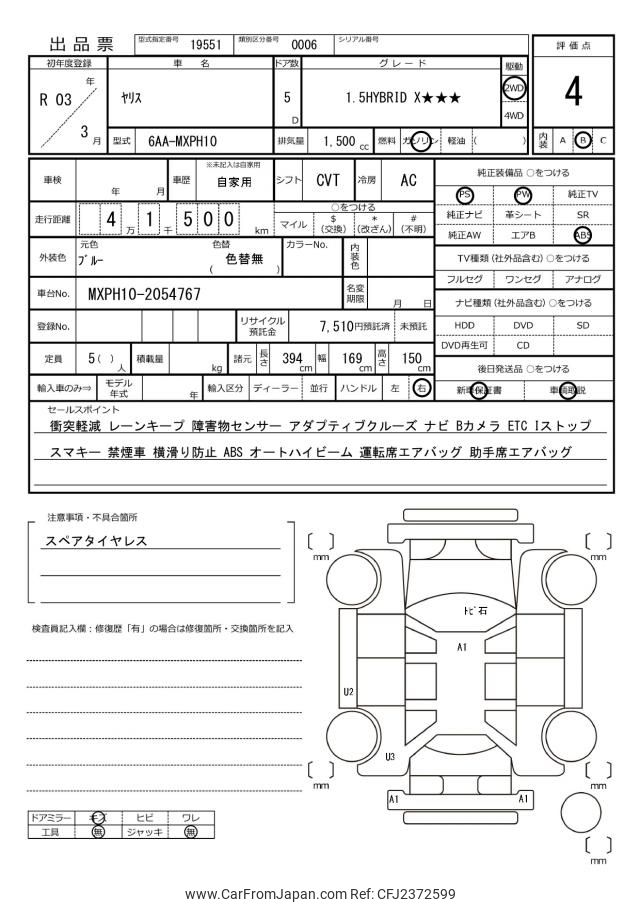 出品票 型式指定番号 19551 類別区分番号 0006 シリアル番号
評価点
初年度登録 車名 ドア数 グレード 駆動
R 03 年 ヤリス 5 D 1.5HYBRID X★★★ 2WD 4WD
4
3 月 型式 6AA-MXPH10 排気量 1,500 cc 燃料 ガソリン 軽油 ( ) 内装 A B C
車検 年 月 車歴 ※未記入は自家用 自家用 シフト CVT 冷房 AC
純正装備品 ○をつける
PS PW 純正TV
純正ナビ 革シート SR
純正AW エアB ABS
走行距離 4 万 1 千 5 0 0 km
○をつける
マイル $ (交換) * (改ざん) # (不明)
外装色 元色 ブルー 色替 ( 色替無 ) カラーNo. 内装色
TV種類 (社外品含む) ○をつける
フルセグ ワンセグ アナログ
車台No. MXPH10-2054767 名変期限 月 日
ナビ種類 (社外品含む) ○をつける
HDD DVD SD
DVD再生可 CD
登録No. リサイクル預託金 7,510円預託済 未預託
定員 5 ( ) 人 積載量 kg 諸元 長さ 394 cm 幅 169 cm 高さ 150 cm
後日発送品 ○をつける
新車保証書 車輌取説
輸入車のみ⇒ モデル年式 年 輸入区分 ディーラー 並行 ハンドル 左 右
セールスポイント
衝突軽減 レーンキープ 障害物センサー アダプティブクルーズ ナビ Bカメラ ETC Iストップ
スマキー 禁煙車 横滑り防止 ABS オートハイビーム 運転席エアバッグ 助手席エアバッグ
注意事項・不具合箇所
スペアタイヤレス
検査員記入欄：修復歴「有」の場合は修復箇所・交換箇所を記入
mm mm
トビ石
A1
U2
U3
mm mm
A1 A1
mm
ドアミラー キズ ヒビ ワレ
工具 無 ジャッキ 無
www.CarFromJapan.com Ref: CFJ2372599